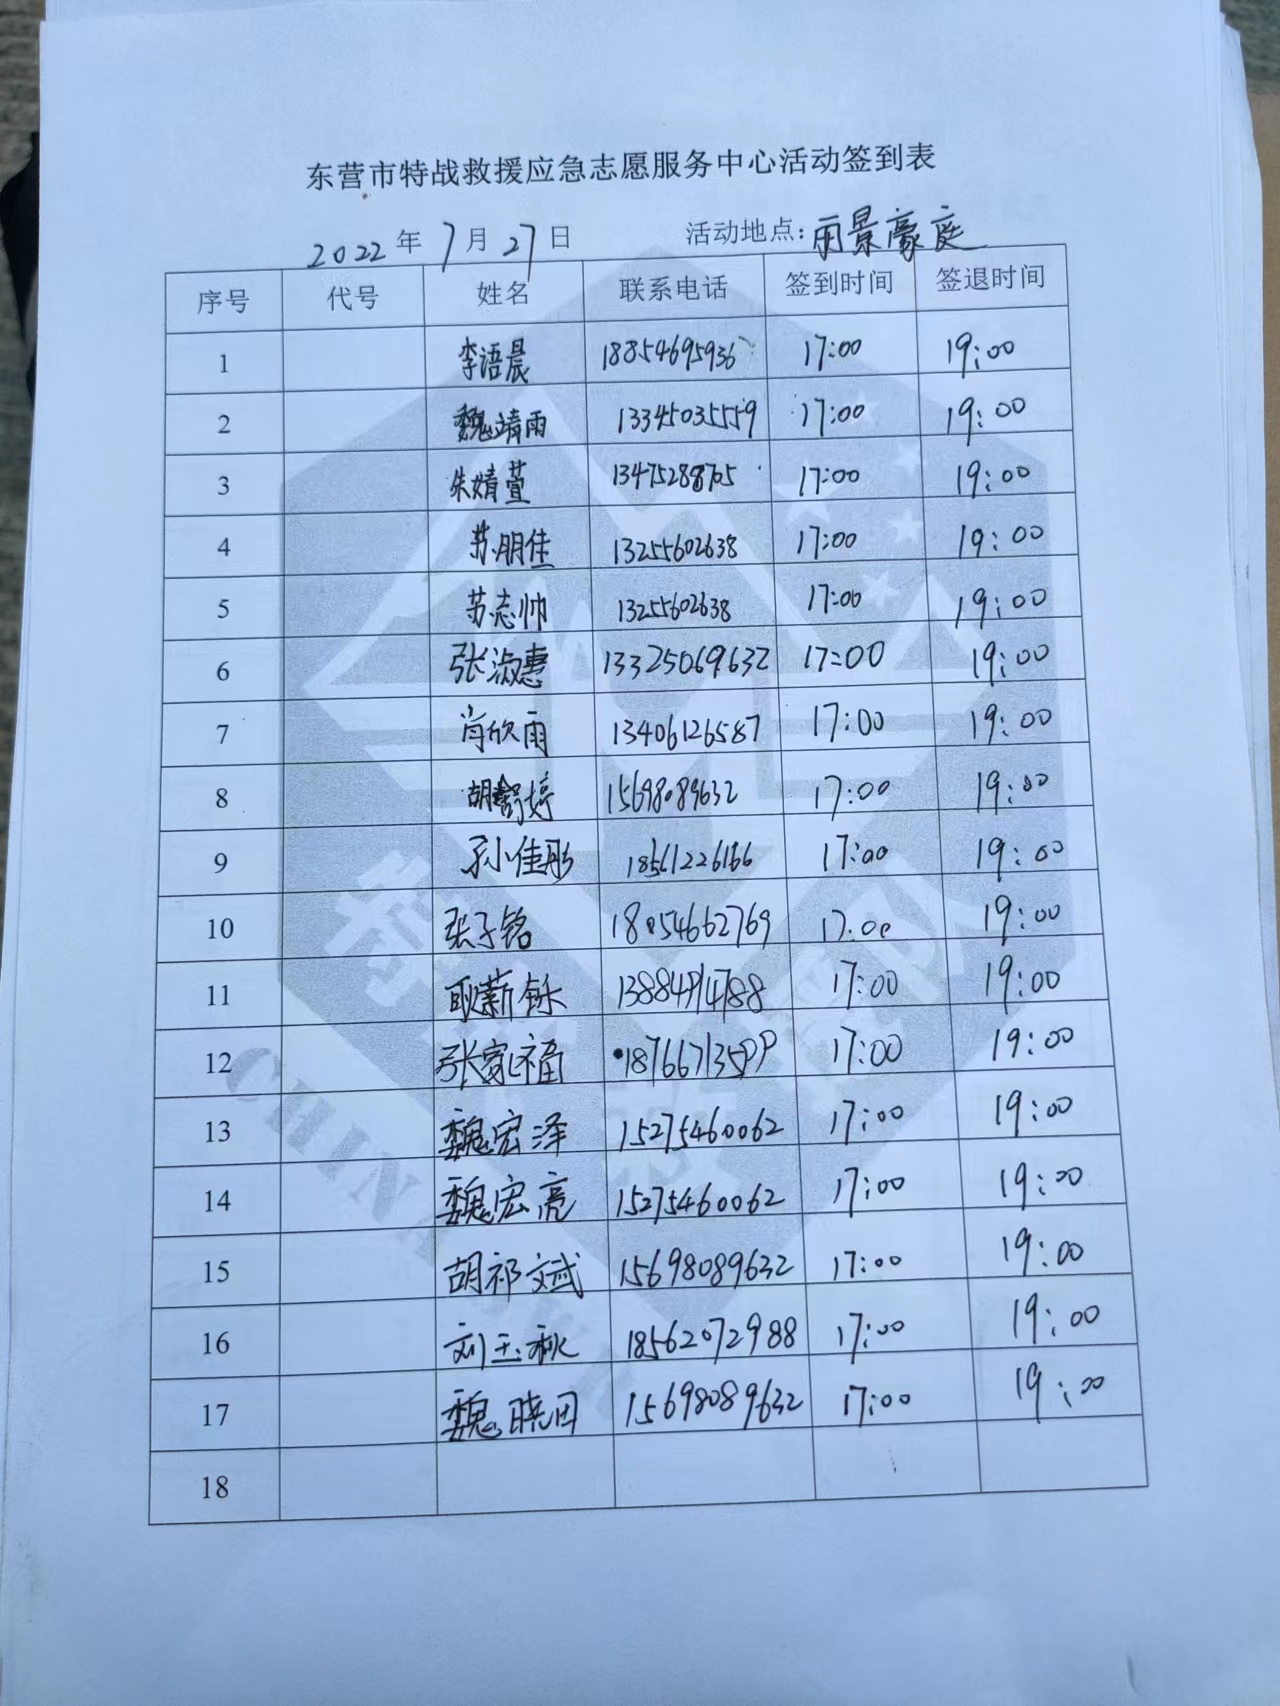 东营市特战救援应急志愿服务中心活动签到表
2022年7月27日 活动地点:雨景豪庭
序号 代号 姓名 联系电话 签到时间 签退时间
1 李语晨 18854695936 17:00 19:00
2 魏靖雨 13345035559 17:00 19:00
3 朱婧萱 13475288705 17:00 19:00
4 苏朋佳 13255602638 17:00 19:00
5 苏志帅 13255602638 17:00 19:00
6 张淑惠 13325069632 17:00 19:00
7 肖欣雨 13406126587 17:00 19:00
8 胡舒婷 15698089632 17:00 19:00
9 孙佳彤 18561226166 17:00 19:00
10 张子铭 18054662769 17:00 19:00
11 耿薪铄 17:00 19:00
12 张家福 17:00 19:00
13 魏宏泽 15275460062 17:00 19:00
14 魏宏亮 15275460062 17:00 19:00
15 胡祁文斌 15698089632 17:00 19:00
16 刘玉秋 18562072988 17:00 19:00
17 魏晓田 15698089632 17:00 19:00
18
CHINA